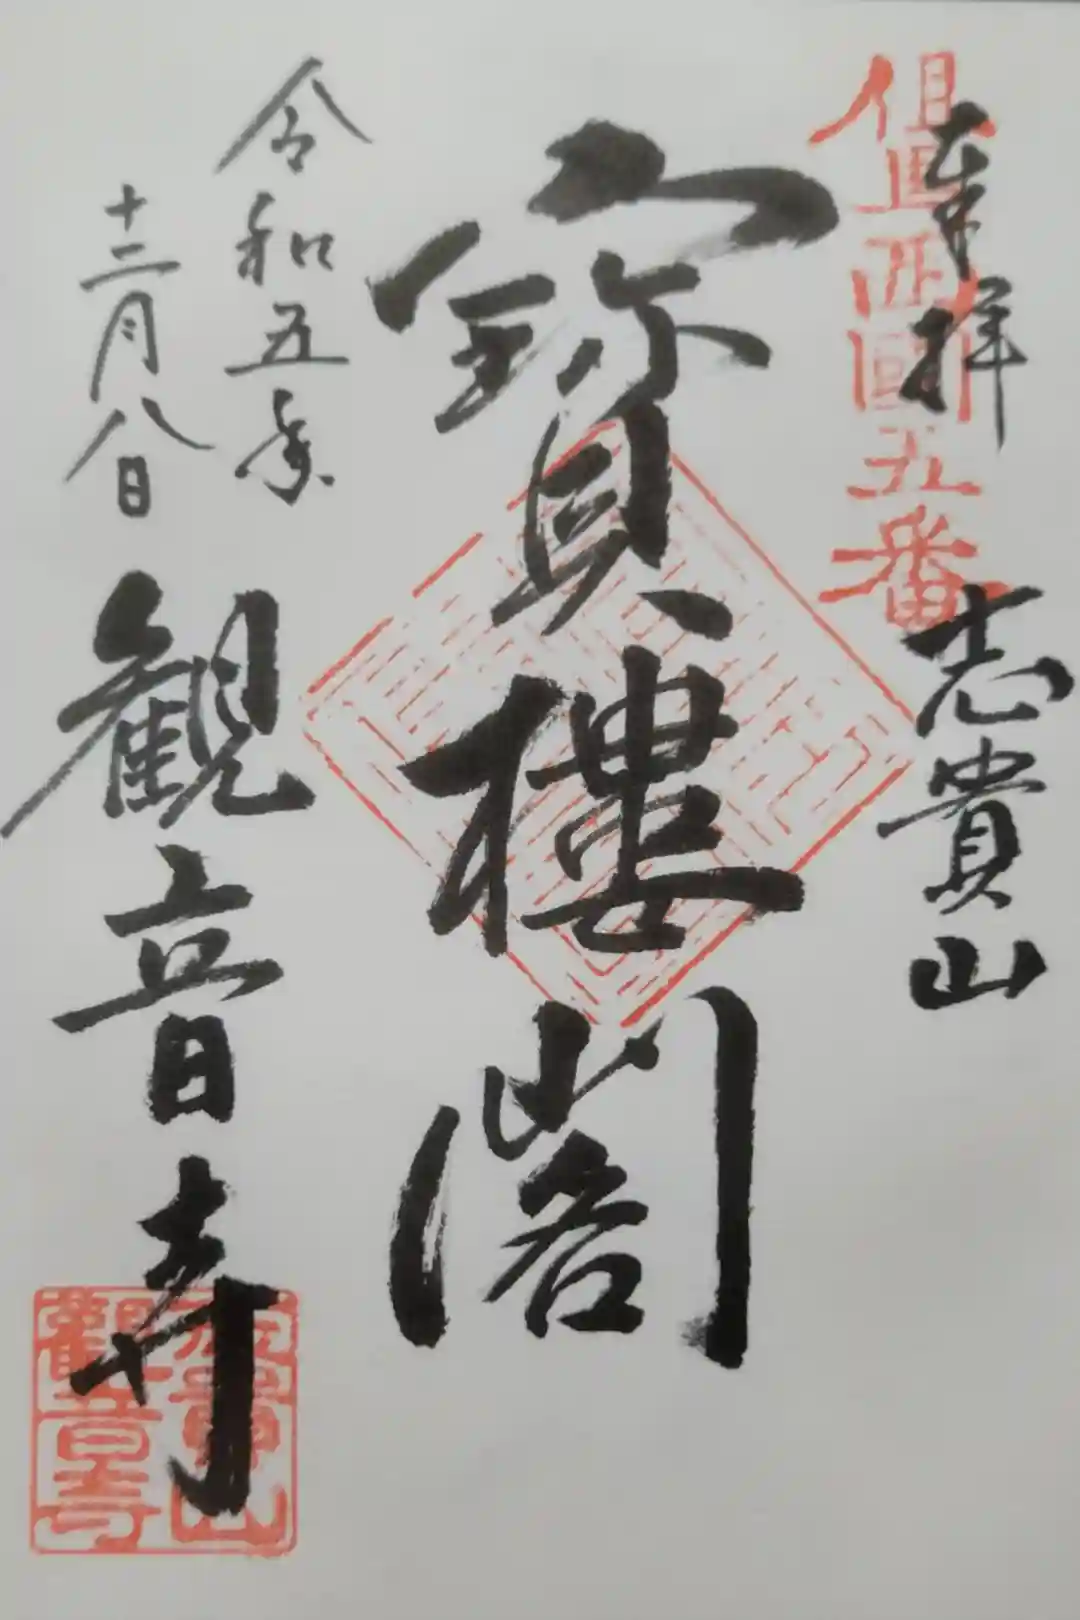 奉拝
志貴山
西國五番
寶樓閣
令和五年
十二月八日
観音寺
志貴山
觀音寺